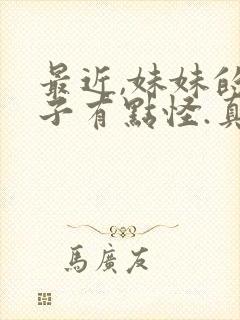 最近,妹妹的
子有點怪.真
馬廣友